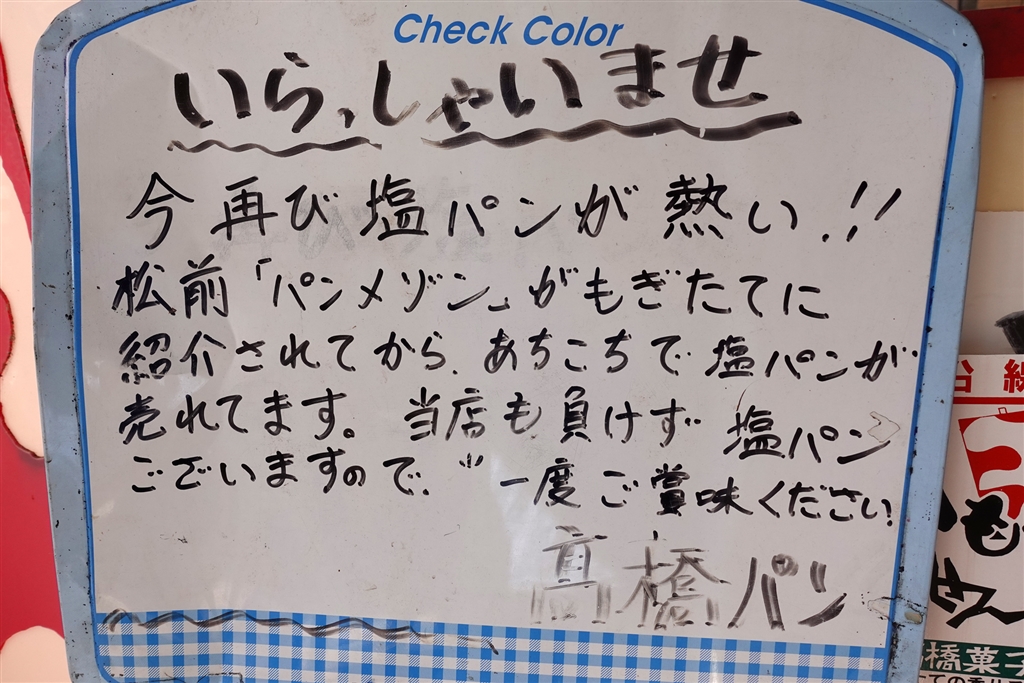 Check Color
いらっしゃいませ
今再び塩パンが熱い!!
松前「パンメゾン」がもぎたてに
紹介されてから、あちこちで塩パンが
売れてます。当店も負けず塩パン
ございますので、"一度ご賞味ください
髙橋パン
沿線
橋菓子